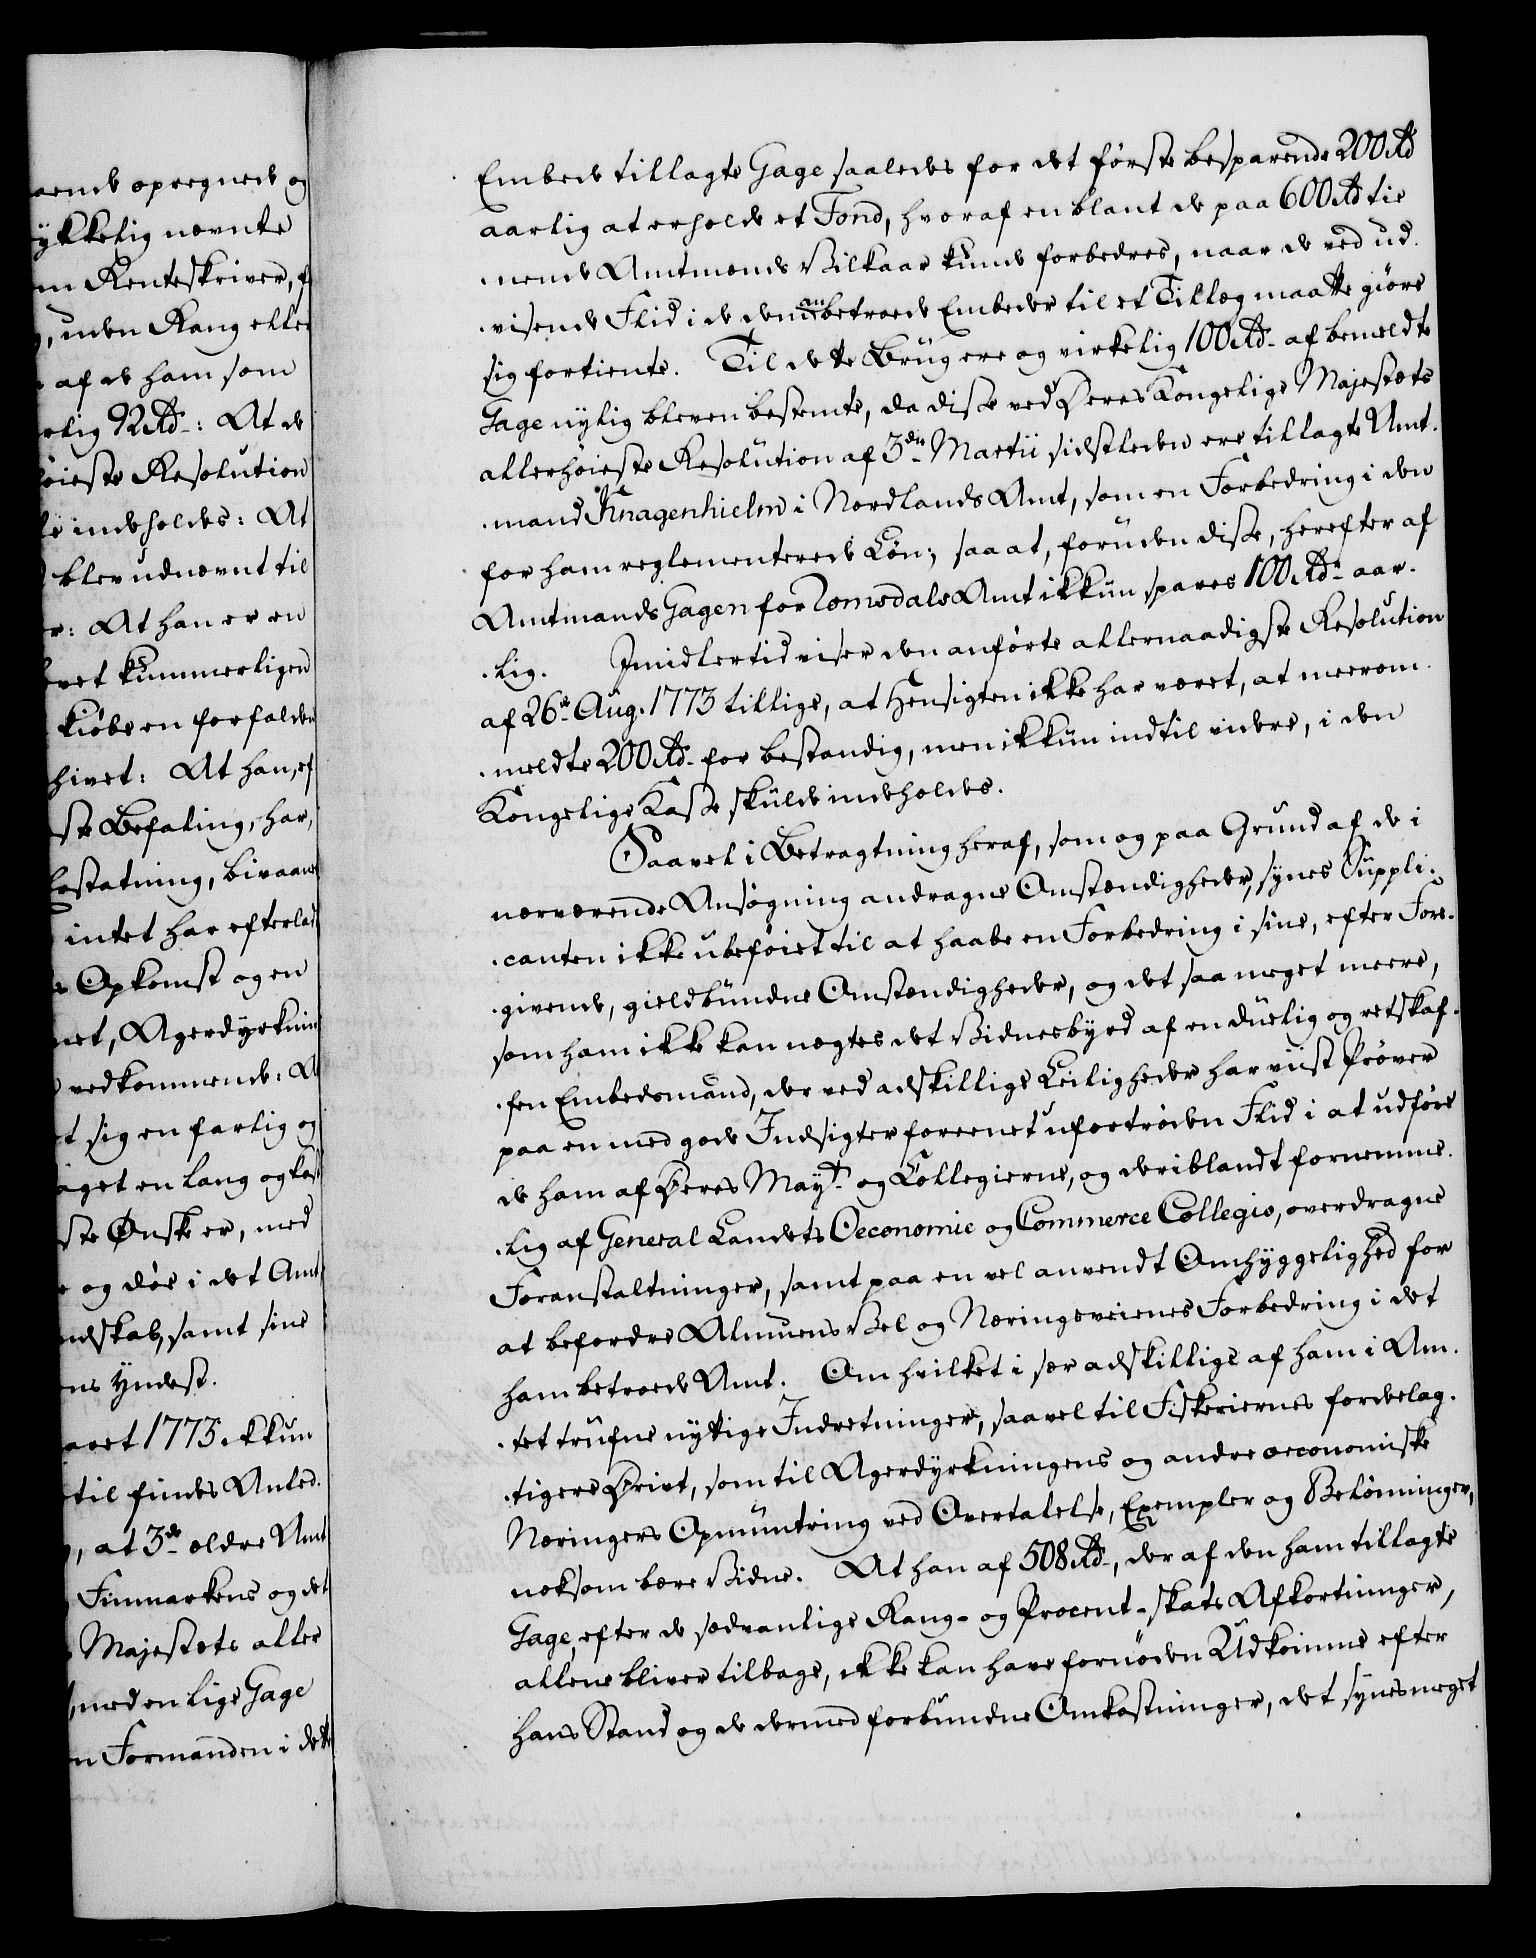 aende opregnede og
ykkelig nævnte
m Renteskriver, f
, uden Rang eller
af de ham som
rlig 92 Rd: At de
øieste Resolution
le indeholdes: At
blev udnævnt til
r: At han er en
vet kummerligen
kiøbe en forfalden
hivet: At han, ef
ste Befaling, har,
rstatning, bivaane
intet har efterlad
Opkomst og en
net, Agerdyrknin
vedkommende: A
t sig en farlig og
aget en lang og kost
ste Ønske er, med
og døe i det Amt
ndskab, samt sine
ens Yndest.
aaret 1773 ikkun
til findes Anled.
, at 3de ældre Amt
Finmarkens og det
Majestæts aller
, med en lige Gage
n Formanden i dette
Embede tillagte Gage saaledes for det første besparende 200 Rd
aarlig at erholde et Fond, hvoraf en blant de paa 600 Rd tie
nende Amtmænds Vilkaar kunde forbedres, naar de ved ud
visende Flid i de dem anbetroede Embeder til et Tillæg maatte giøre
sig fortiente. Til dette Brug ere og virkelig 100 Rd af bemeldte
Gage nylig bleven bestemte, da disse ved Deres Kongelige Majestæts
allerhøieste Resolution af 3die Martii sidstleden ere tillagte Amt
mand Knagenhielm i Nordlands Amt, som en Forbedring i den
for ham reglementerede Løn; saa at, foruden disse, herefter af
Amtmands Gagen for Romsdals Amt ikkun spares 100 Rd aar
lig. Imidlertid viser den anførte allernaadigste Resolution
af 26de Aug. 1773 tillige, at Hensigten ikke har været, at meerom
meldte 200 Rd for bestandig, men ikkun indtil videre, i den
Kongelige Kasse skulde indeholdes.
Saavel i Betragtning heraf, som og paa Grund af de i
nærværende Ansøgning andragne Omstændigheder, synes Suppli
canten ikke ubeføiet til at haabe en Forbedring i sine, efter Fore
givende, gieldbundne Omstændigheder, og det saa meget meere,
som ham ikke kan nægtes det Vidnesbyrd af en duelig og retskaf
fen Embedsmand, der ved adskillige Leiligheder har viist Prøver
paa en med gode Indsigter foreenet ufortrøden Flid i at udføre
de ham af Deres Mayt og Collegierne, og deriblandt fornemme
lig af General Landets Oeconomie og Commerce Collegio, overdragne
Foranstaltninger, samt paa en vel anvendt Omhyggelighed for
at befordre Almuens Vel og Næringsveienes Forbedring i det
ham betroede Amt. Om hvilket i sær adskillige af ham i Am
tet trufne nyttige Indretninger, saavel til Fiskeriernes fordelag
tigere Drivt, som til Agerdyrkningens og andre oeconomiske
Næringers Opmuntring ved Overtalelse, Exempler og Belønninger,
noksom bære Vidne. At han af 508 Rd, der af den ham tillagte
Gage, efter de sædvanlige Rang- og Procent-skats Afkortninger,
allene bliver tilbage, ikke kan have fornøden Udkomme efter
hans Stand og de dermed forbundne Omkostninger, det synes meget